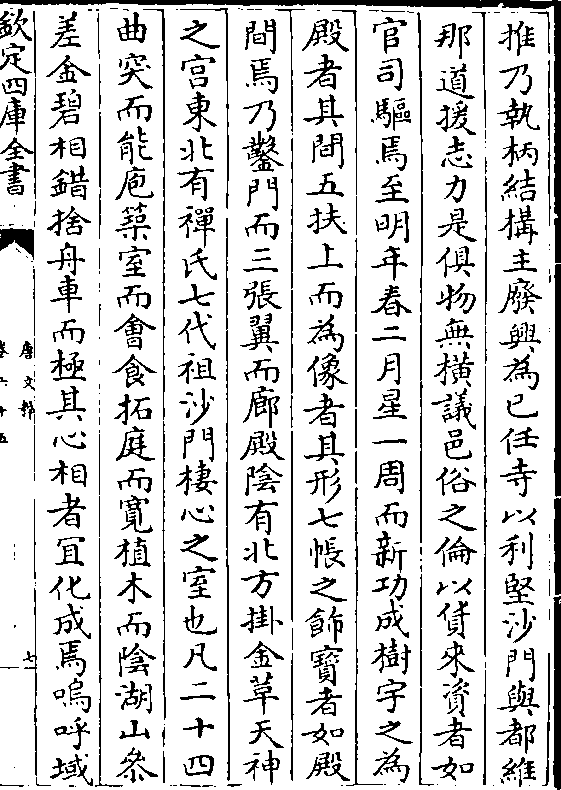 推乃執柄結構主廢興為已任寺以利堅沙門與都維
那道援志力是俱物無橫議邑俗之倫以貨來資者如
官司驅焉至明年春二月星一周而新功成樹宇之為
殿者其間五扶上而為像者其形七帳之飾寶者如殿
間焉乃鑿門而三張翼而廊殿陰有北方掛金草天神
之宫東北有禪氏七代祖沙門棲心之室也凡二十四
曲突而能庖築室而會食拓庭而寛植木而陰湖山參
差金碧相錯捨舟車而極其心相者冝化成焉嗚呼域
欽定四庫全書
唐文粹
卷六十五
七